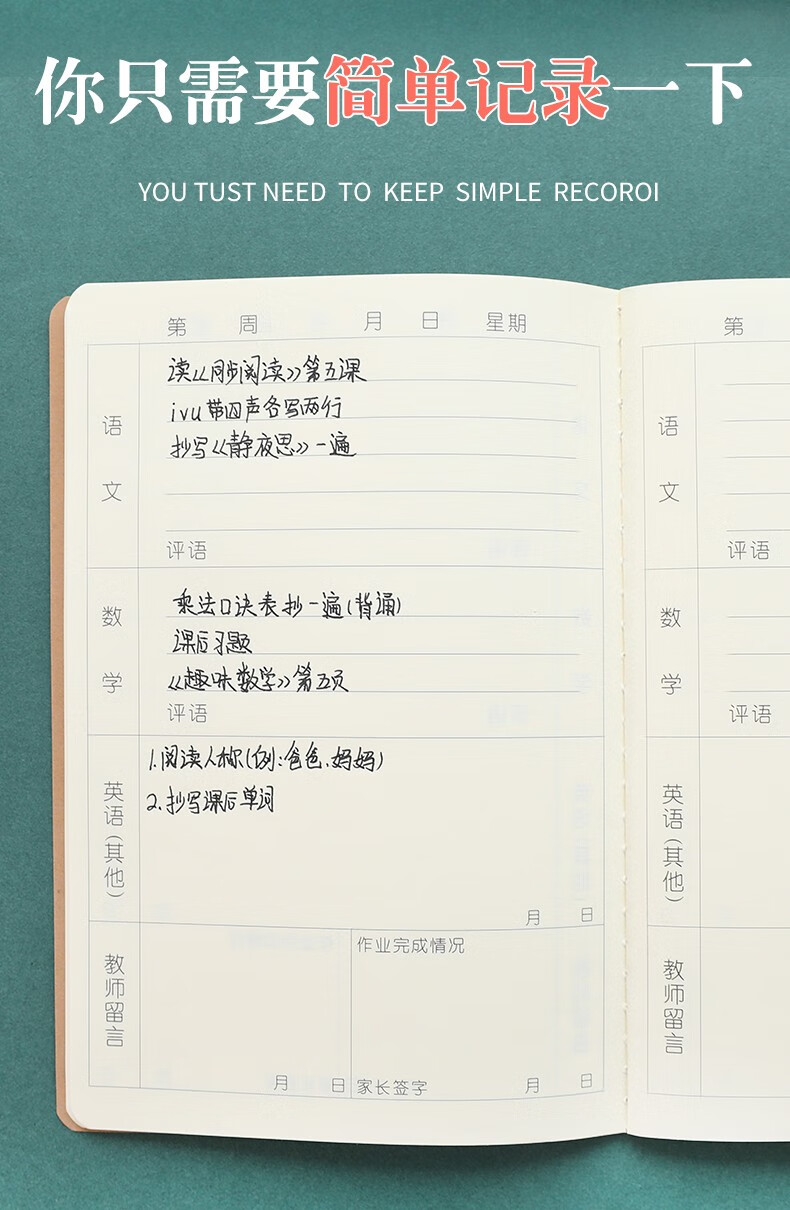 你只需要简单记录一下
YOU TUST NEED TO KEEP SIMPLE RECOROI
第 周 月 日 星期
语文
读《同步阅读》第五课
ivu带四声各写两行
抄写《静夜思》一遍
评语
数学
乘法口诀表抄一遍(背诵)
课后习题
《趣味数学》第五页
评语
英语(其他)
1.阅读人称(例:爸爸、妈妈)
2.抄写课后单词
月 日
教师留言
月 日
作业完成情况
家长签字 月 日
第
语文
评语
数学
评语
英语(其他)
教师留言